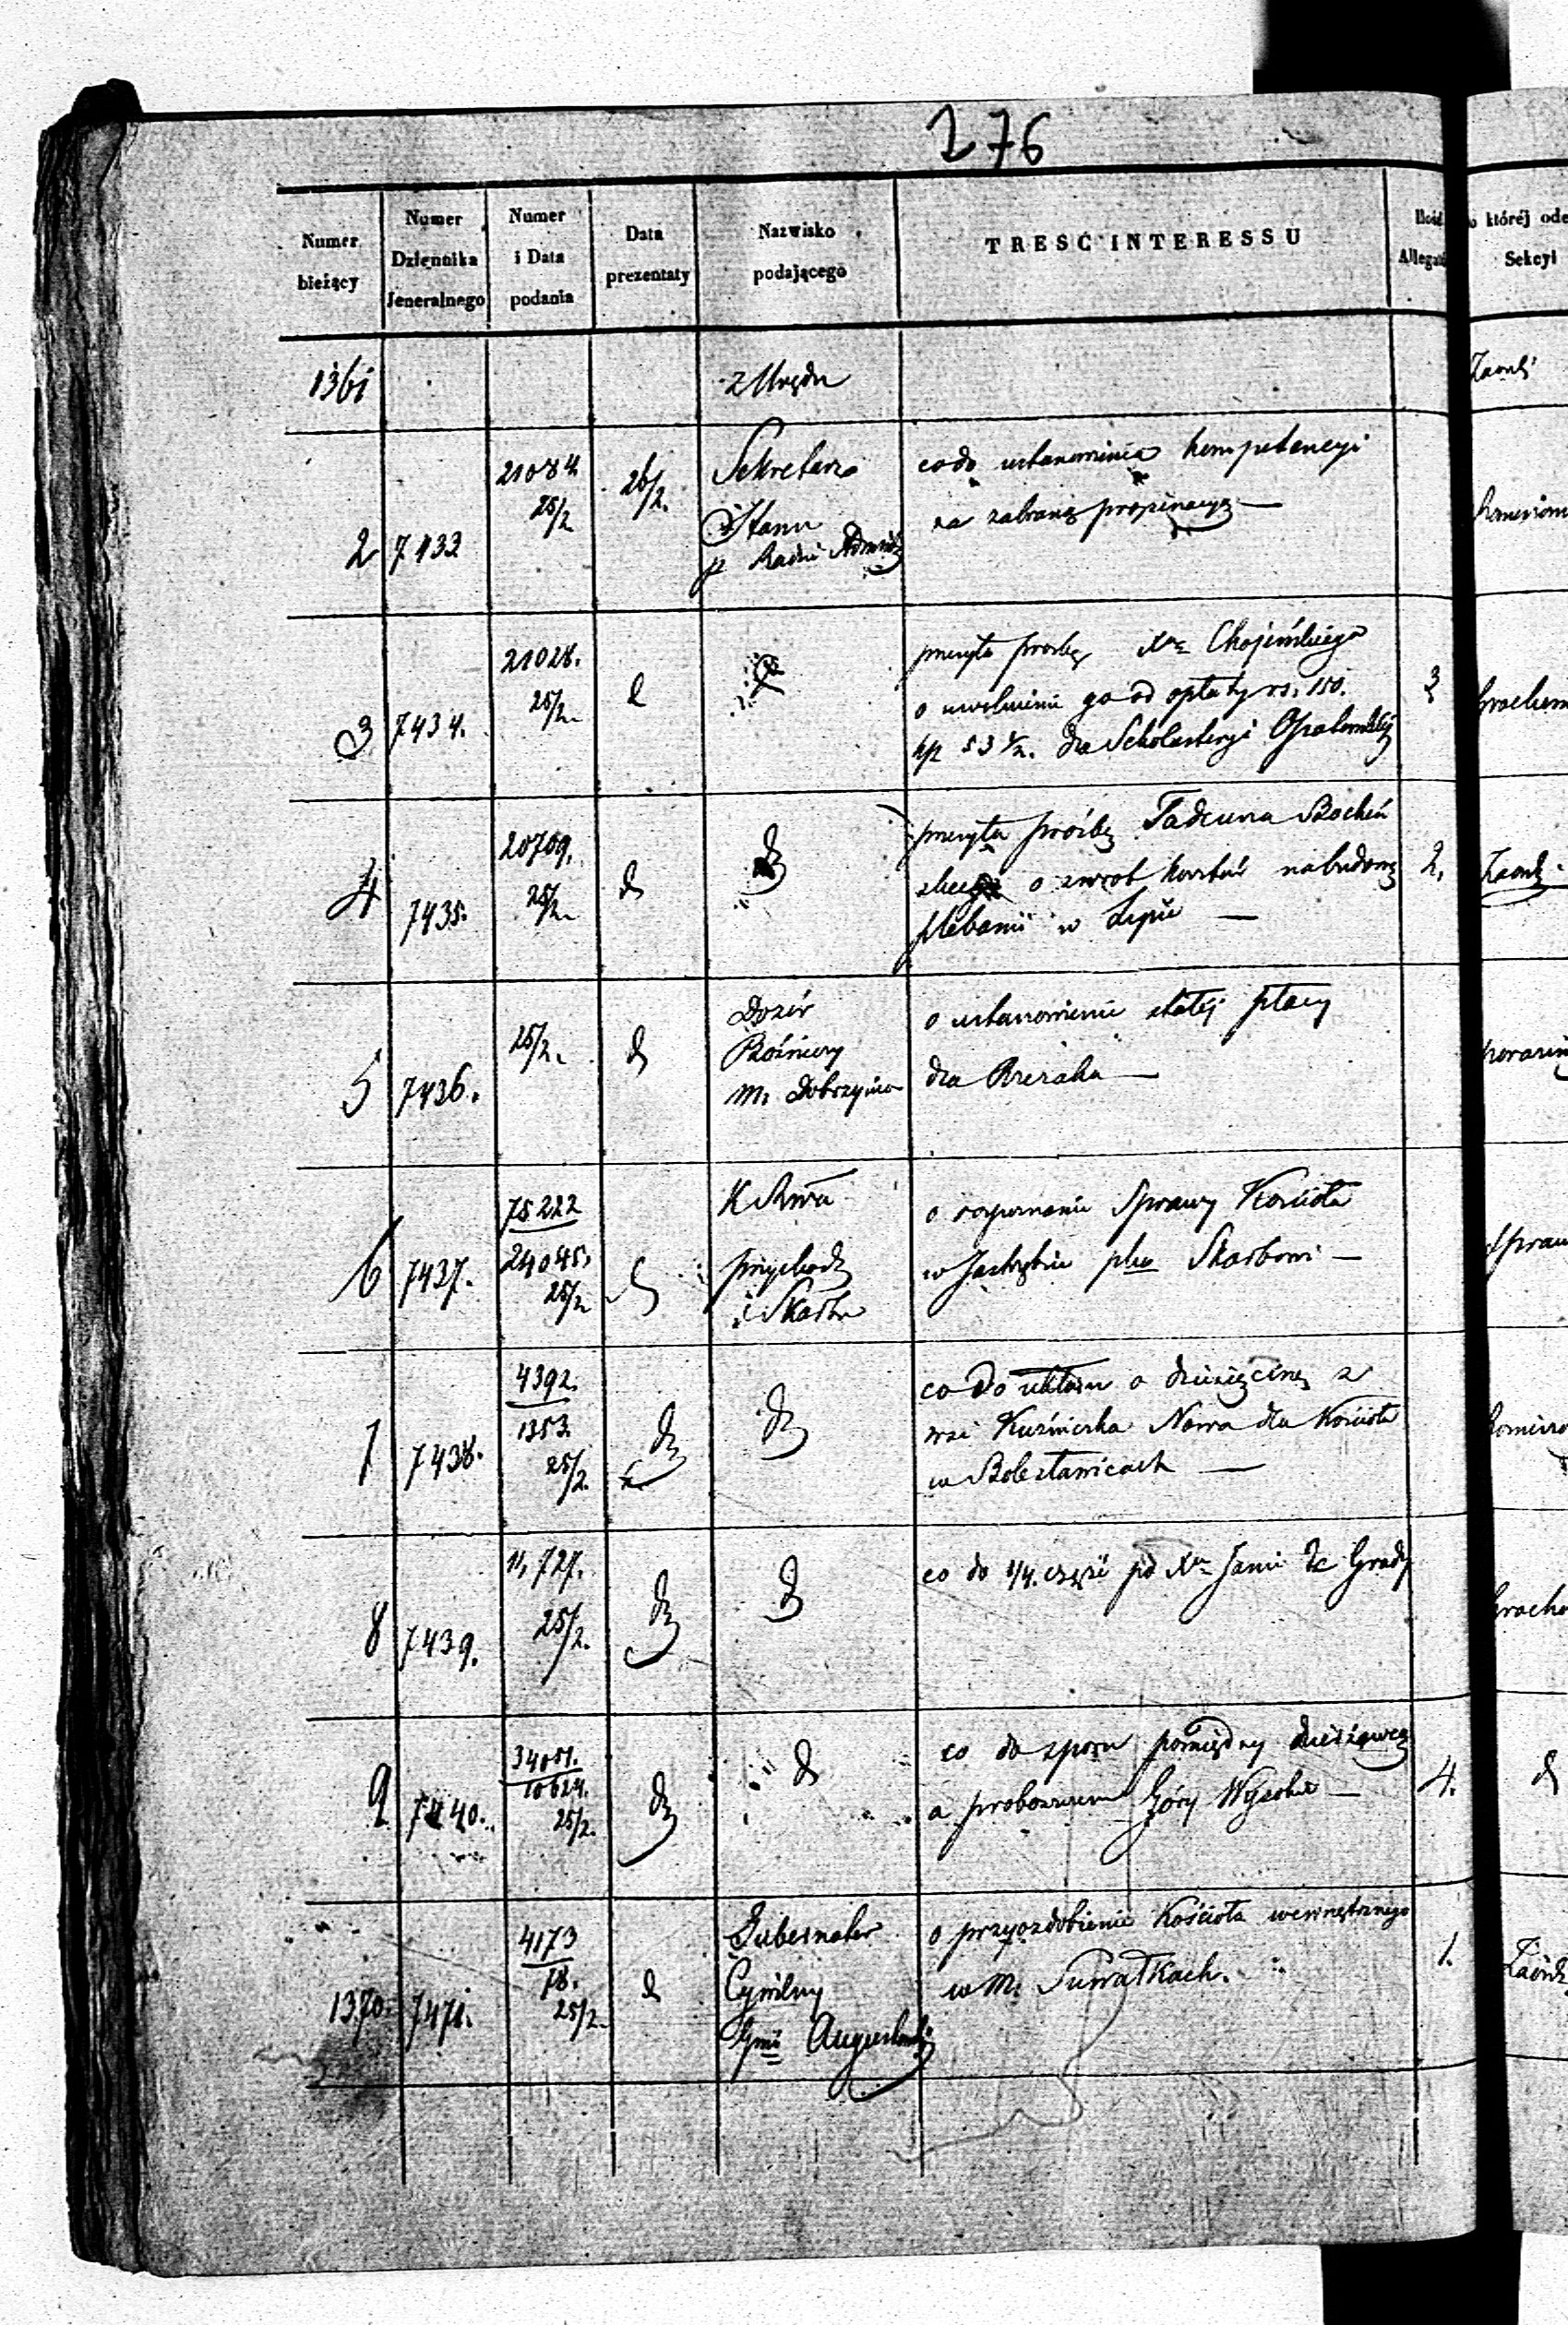 276
Numer bieżący
Numer Dziennika Jeneralnego
Numer i Data podania
Data prezentaty
Nazwisko podającego
TRESĆ INTERESSU
Ilość Allegat
której ode
Sekcyi
1361 z Urzędu
2 7433 21084 25/2 26/2 Sekretarz Stanu p Radzie
co do ustanowienia kompetencyi
za zabraną propinacyę —
3 7434. 21028. 25/2 d d
przesyła prośbę Xa Chojeńskiego
o uwolnienie go od opłaty rs. 150.
kp 53 1/2. dla Scholasteryi Opatowskiej
3
4 7435. 20709. 25/2 d d
przesyła prośbę Tadeusza Bocheń
o zwrot kosztów na budowę
plebanii w Lipie —
2.
5 7436. 25/2. d Dozór Bóżniczy m. Dobrzynia
o ustanowienie stałej płacy
dla Rzezaka —
6 7437. 75222 24045. 25/2 d K Rzwa przychod i Skarbu
o rozpoznanie Sprawy Kościoła
w Jastrzębiu plko Skarbowi —
7 7438. 4392. 1353 25/2. d d
co do układu o dziesięcinę z
wsi Kuźniczka Nowa dla Kościoła
w Bolesławicach —
8 7439. 11,727. 25/2. d d
co do 1/4. części po Xu Janie de Grady
9 7440. 34051. 10624. 25/2. d d
co do sporu pomiędzy dzierżawcą
a proboszczem Góry Wysokie —
4.
d
1370 7471. 4173 18. 25/2 d Gubernator Cywilny Gnii
o przyozdobienie Kościoła wewnętrznego
w M. Suwałkach.
1.